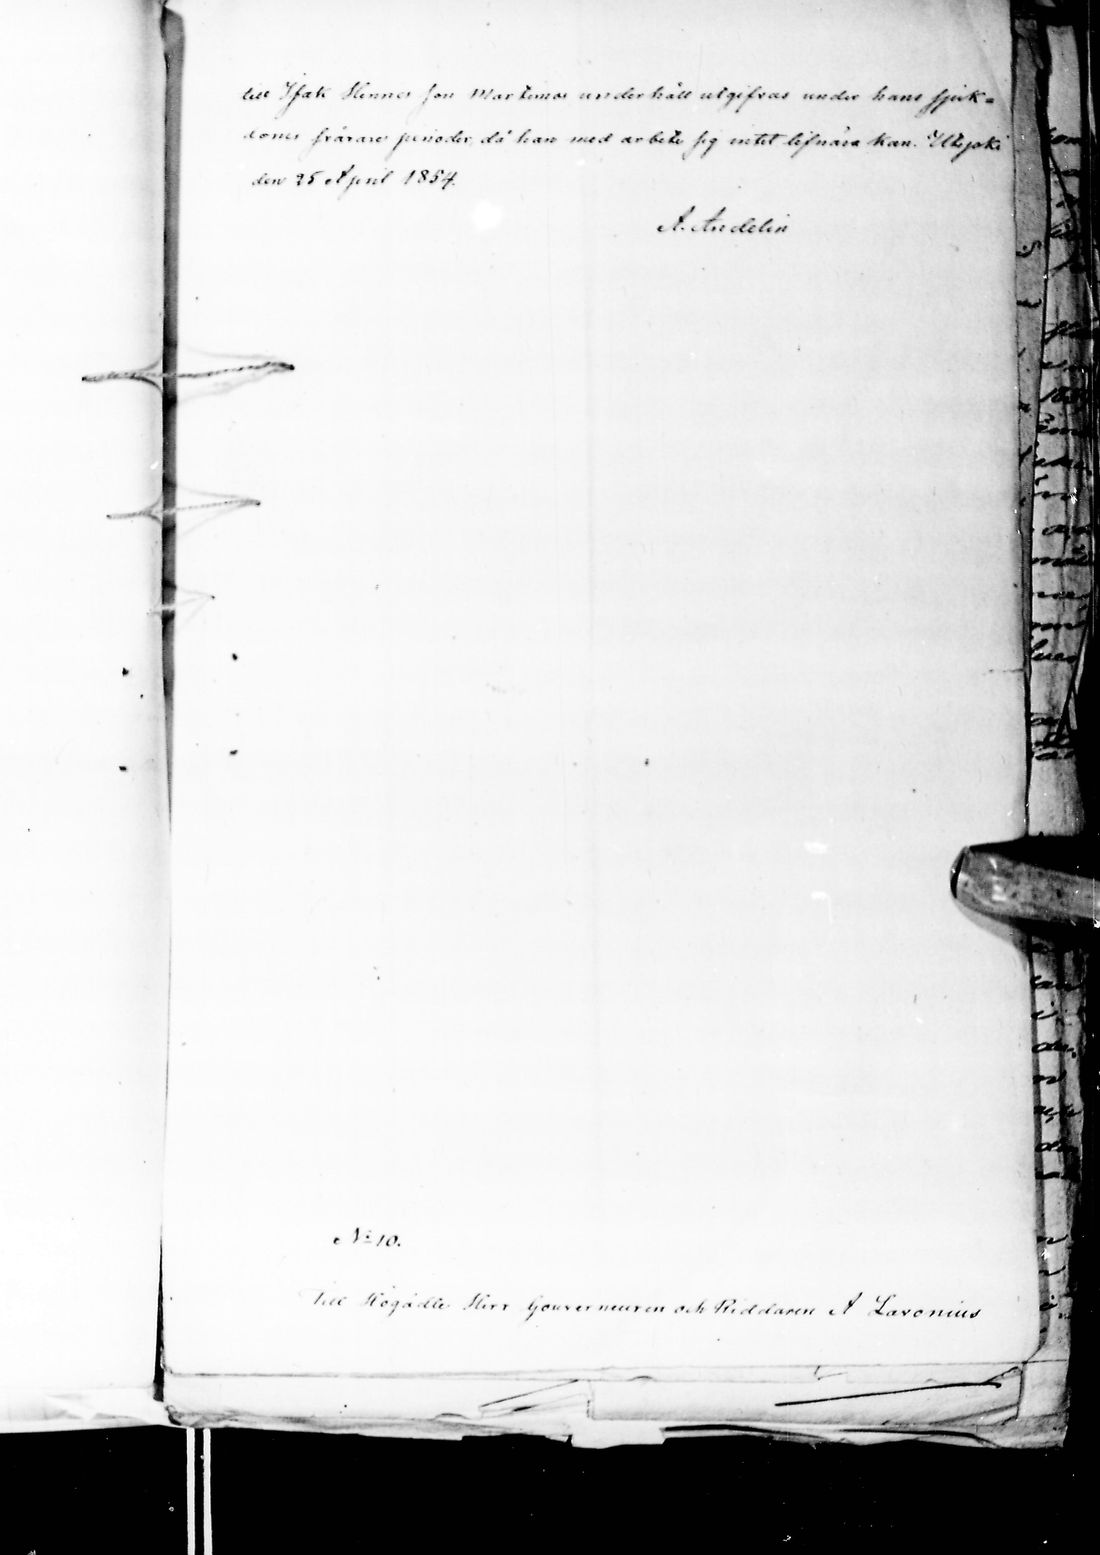 till Isak Hennes son Martimos underhåll utgifvas under hans sjuk=
domes svårare perioder, då han med arbete sig intet lifnära kan. Utsjoki
den 25 April 1854.
A. Andelin
No 10.
Till Högädle Herr Gouverneuren och Riddaren A Lavonius